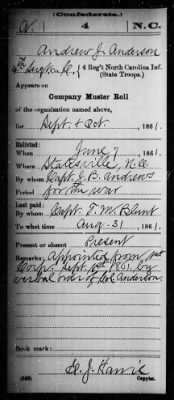 (Confederate.)
A. 4 N.C.
Andrew J. Anderson
4th Sergt Co. C, 4 Reg't North Carolina Inf.
(State Troops.)
Appears on
Company Muster Roll
of the organization named above,
for Sept & Oct, 1861.
Enlisted:
When June 7, 1861.
Where Statesville, N.C.
By whom Capt J. B. Andrews
Period for the war
Last paid:
By whom Capt. T. M. Blunt
To what time Aug. 31, 1861.
Present or absent Present
Remarks: Appointed from 1st
Corp. Sept 1861 by
verbal order of Col Anderson.
Book mark:
(642) Copyist.